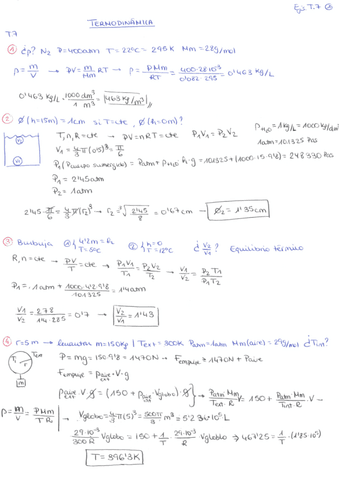 Ej: T.7 ①
TERMODINÁMICA
T.7
① ¿ρ? N₂ P=400atm T=22ºC = 295K Mm=28g/mol
ρ = m/V → PV = m/Mm RT → ρ = P Mm/RT = 400·28·10⁻³/0'082·295 = 0'463 Kg/L
0'463 Kg/L · 1000dm³/1m³ = 463 Kg/m³
② Ø(h=15m)=1cm si T=cte, ¿Ø(h=0m)?
T,n,R=cte → PV=nRT=cte P₁V₁ = P₂V₂
ρH₂O=1Kg/L=1000Kg/dm³
1atm=101325 Pas
V₁ = 4/3 π(0'5)³ = π/6
P₁(Presión sumergido) = Patm + ρH₂O·h·g = 101325+(1000·15·9'8) = 248.330 Pas
P₁ = 2'45atm
P₂ = 1atm
2'45·π/6 = 4/3 π(r₂)³ → r₂ = ³√2'45/8 = 0'67cm → Ø₂ = 1'35cm
③ Burbuja ① h=4'2m T=5ºC ② h=0 T=12ºC ¿V₂/V₁? Equilibrio térmico
R,n=cte → PV/T = cte → P₁V₁/T₁ = P₂V₂/T₂ → V₁/V₂ = P₂T₁/P₁T₂
P₁ = 1atm + 1000·4'2·9'8/101325 = 1'4atm
V₁/V₂ = 278/1'4·285 = 0'7 → V₂/V₁ = 1'43
④ r=5m → Levantar m=150Kg / Text=300K Patm=1atm Mm(aire)=29g/mol ¿Tin?
P = mg = 150·9'8 = 1470N → Fempuje = 1470N + Paire
Fempuje = ρaire·V·g
ρaire·V·g = (150 + ρaire·Vglobo)·g → Patm Mm/Text·R V = 150 + Patm Mm/Tint·R V
ρ = m/V = P Mm/T R
Vglobo = 4/3 π(5)³ = 500π/3 m³ = 5'236·10⁵ L
29·10⁻³/300 R Vglobo = 150 + 1/T · 29·10⁻³/R Vglobo ⇒ 467'25 = 1/T · (1'85·10⁵)
T = 396'3K